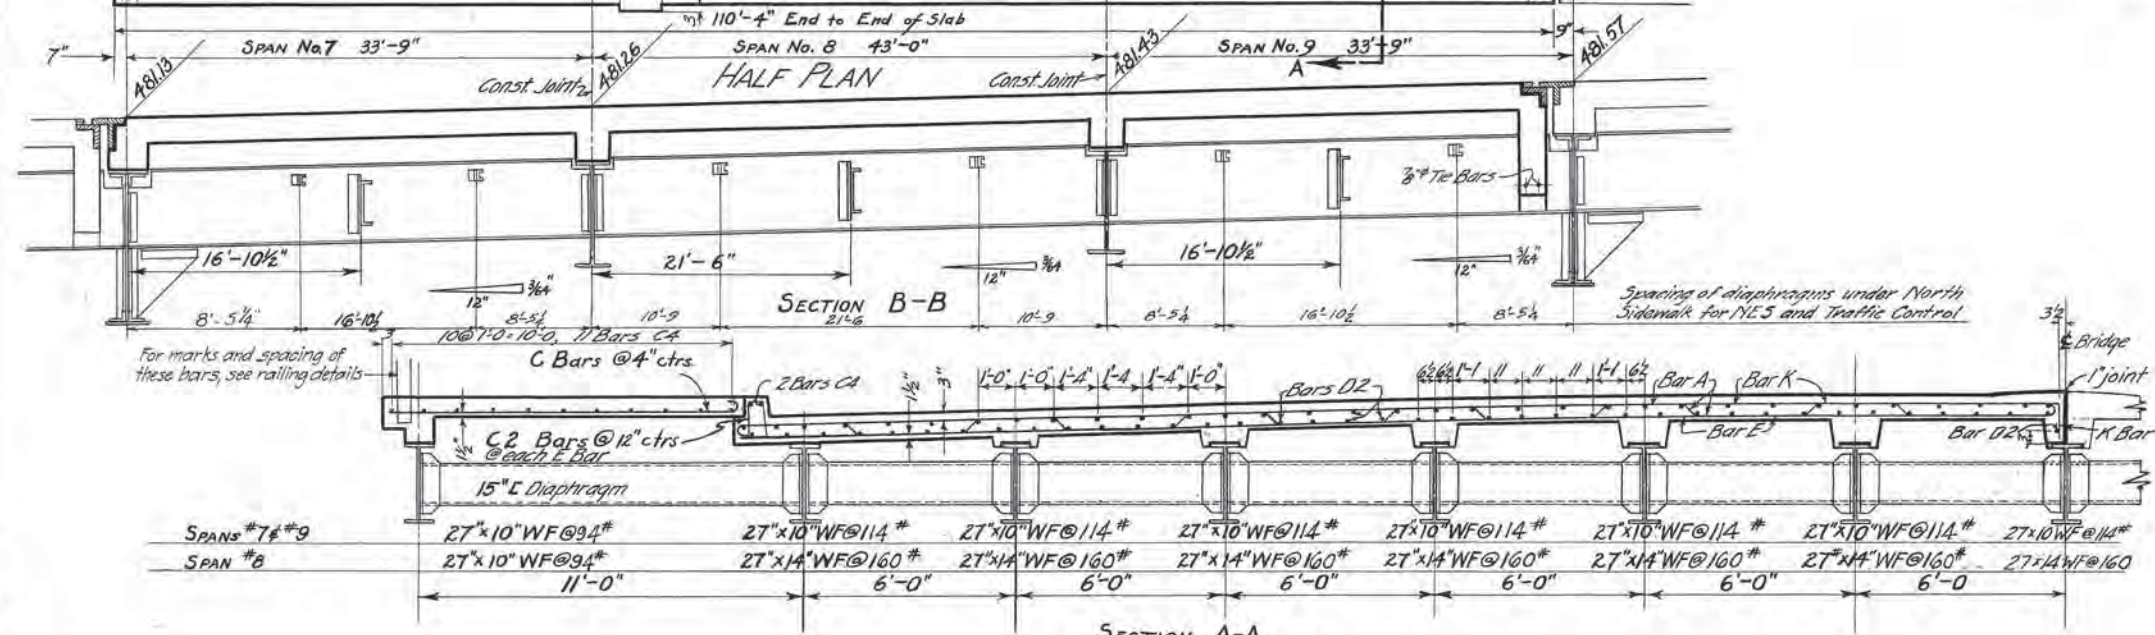 110'-4" End to End of Slab
7"
SPAN No.7 33'-9"
SPAN No. 8 43'-0"
SPAN No.9 33'-9"
9"
481.13
481.26
481.43
481.57
Const. Joint
HALF PLAN
Const. Joint
A
7/8"ϕ Tie Bars
16'-10½"
21'-6"
16'-10½"
12" 3/64"
12" 3/64
12" 3/64"
SECTION B-B
8'-5¼" 16'-10½ 8'-5¼ 10'-9 21'-6 10'-9 8'-5¼ 16'-10½ 8'-5¼
Spacing of diaphragms under North
Sidewalk for NES and Traffic Control
3½
℄ Bridge
1" joint
3" 10@1'-0=10'-0, 11 Bars C4
For marks and spacing of
these bars, see railing details
C Bars @4" ctrs.
2 Bars C4
1½"
3"
1'-0" 1'-0 1'-4" 1'-4 1'-4" 1'-0"
Bars D2
6½ 6½ 1'-1 11 11 11 1'-1 6½
Bar A
Bar K
1½"
C2 Bars @12" ctrs
@each E Bar
1½"
Bar E
Bar D2
K Bar
15" [ Diaphragm
SPANS #7 & #9 27"x10" WF@94# 27"x10" WF@114# 27"x10" WF@114# 27"x10" WF@114# 27"x10" WF@114# 27"x10" WF@114# 27"x10" WF@114# 27x10 WF@114#
SPAN #8 27"x10" WF@94# 27"x14" WF@160# 27"x14" WF@160# 27"x14" WF@160# 27"x14" WF@160# 27"x14" WF@160# 27"x14" WF@160# 27x14 WF@160
11'-0" 6'-0" 6'-0" 6'-0" 6'-0" 6'-0" 6'-0
SECTION A-A